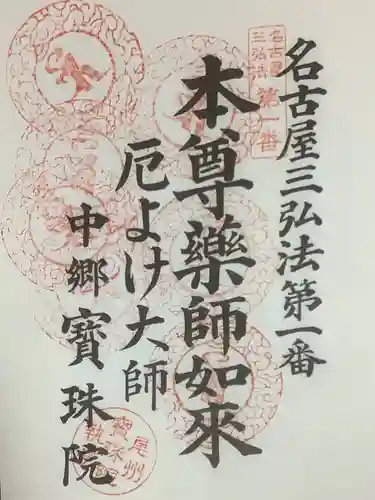 名古屋三弘法第一番
名古屋
三弘法
第一番
本尊藥師如來
厄よけ大師
中郷寳珠院
尾州
寳珠